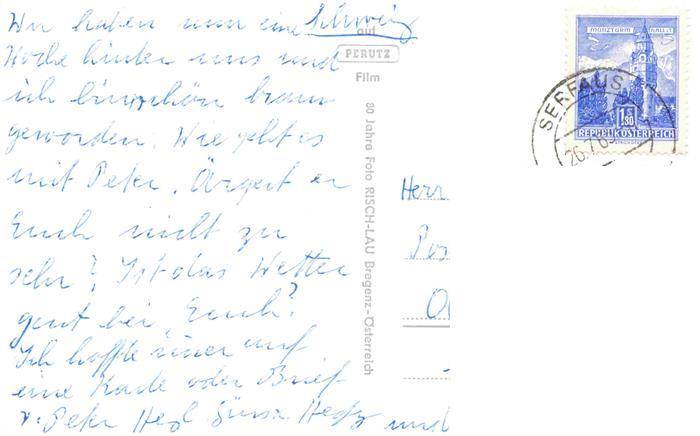 Wir haben nun eine Schweiz
Woche hinter uns und
ich bin schön braun
geworden. Wie geht es
mit Peter. Ärgert er
Euch nicht zu
sehr? Ist das Wetter
gut bei Euch?
Ich hoffe auf
eine Karte oder Brief
v. Peter Herzl und
auf
PERUTZ
Film
80 Jahre Foto RISCH-LAU Bregenz-Österreich
MÜNZTURM HALL i.T.
1.80
REPUBLIK ÖSTERREICH
SERFAUS
26.7.6
Herr
Pos